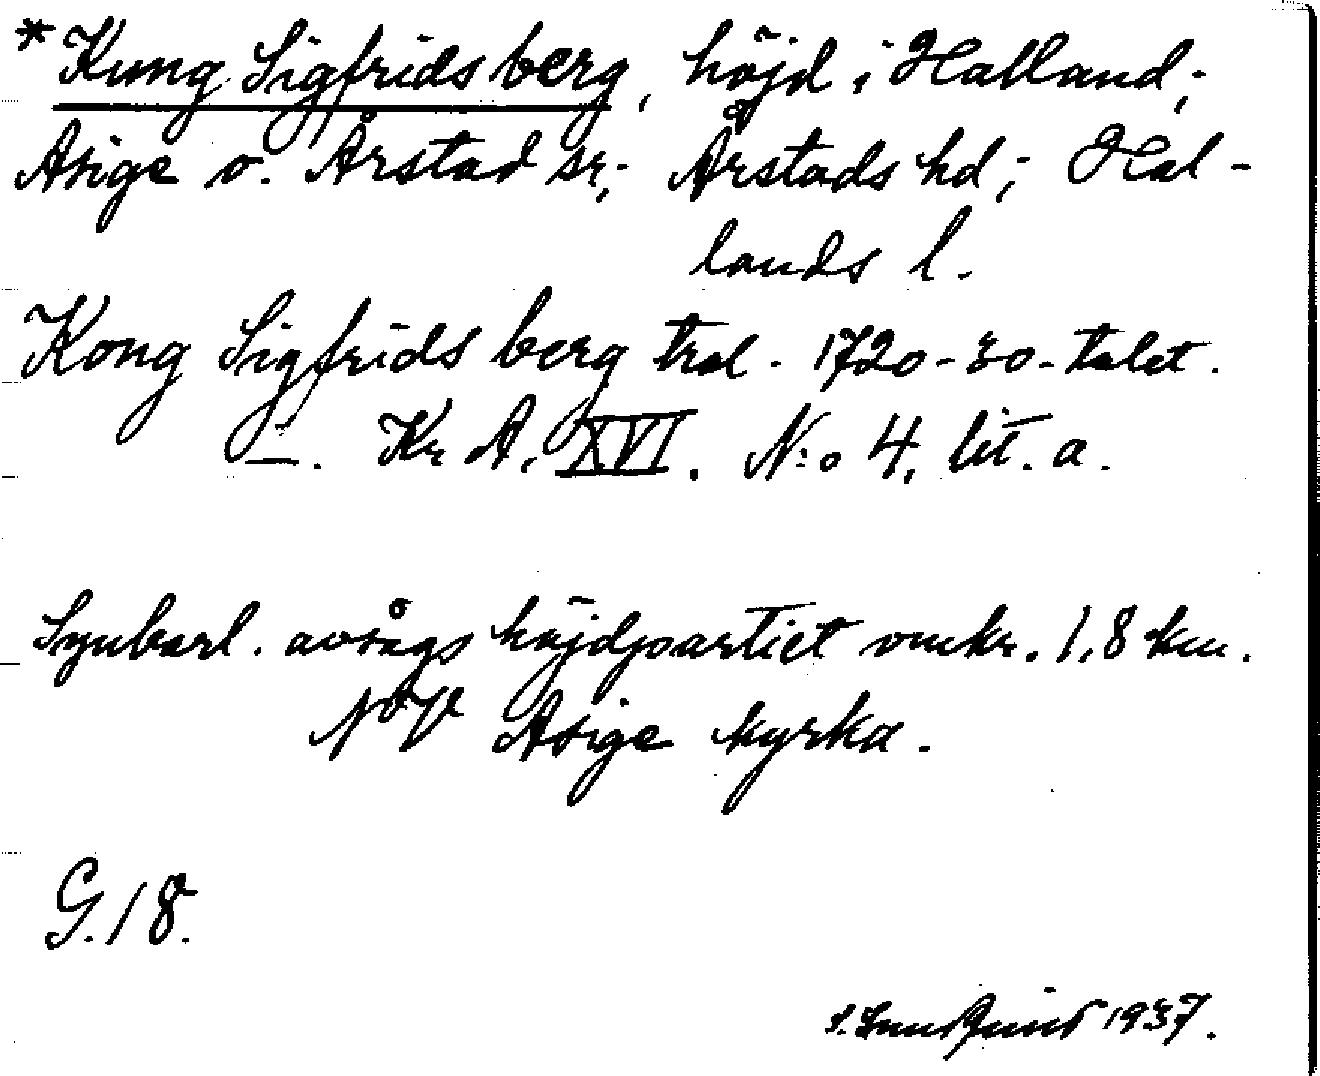 *Kung Sigfrids berg, höjd i Halland;
Asige o. Årstad sr; Årstads hd; Hal-
lands l.
Kong Sigfrids berg trol. 1720-30-talet.
I. Kr A. XVI. N:o 4. lit. a.
Synbarl. avsågs höjdpartiet omkr. 1,8 km.
NV Asige kyrka.
G.18.
1937.